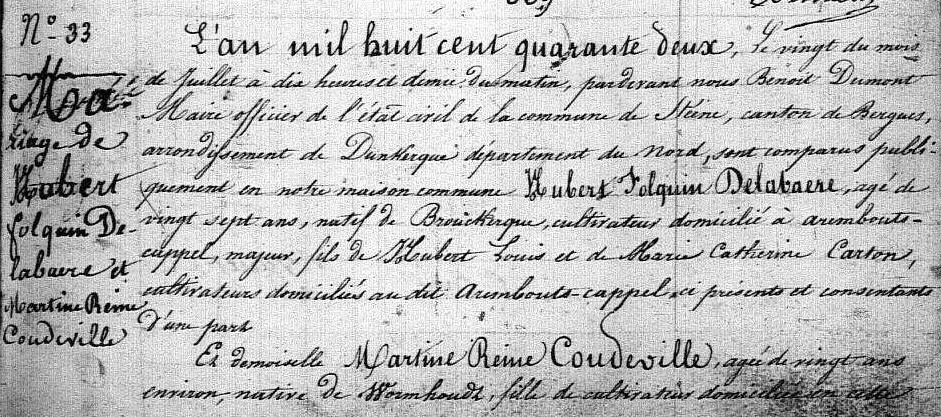 N° 33
Mariage de
Hubert
folquin De-
labaere et
Martine Reine
Coudeville
L'an mil huit cent quarante deux, le vingt du mois
de Juillet à dix heures et demie du matin, pardevant nous Benoit Dumont
Maire officier de l'état civil de la commune de Stéene, canton de Bergues,
arrondissement de Dunkerque département du Nord, sont comparus publi-
quement en notre maison commune Hubert Folquin Delabaere, agé de
vingt sept ans, natif de Brouckerque, cultivateur domicilié à arembouts-
cappel, majeur, fils de Hubert Louis et de Marie Catherine Carton,
cultivateurs domiciliés au dit Arembouts-cappel, ci présents et consentants
D'une part
Et demoiselle Martine Reine Coudeville, agée de vingt ans
environ, native de Wormhoudt, fille de cultivateur domiciliée en cette